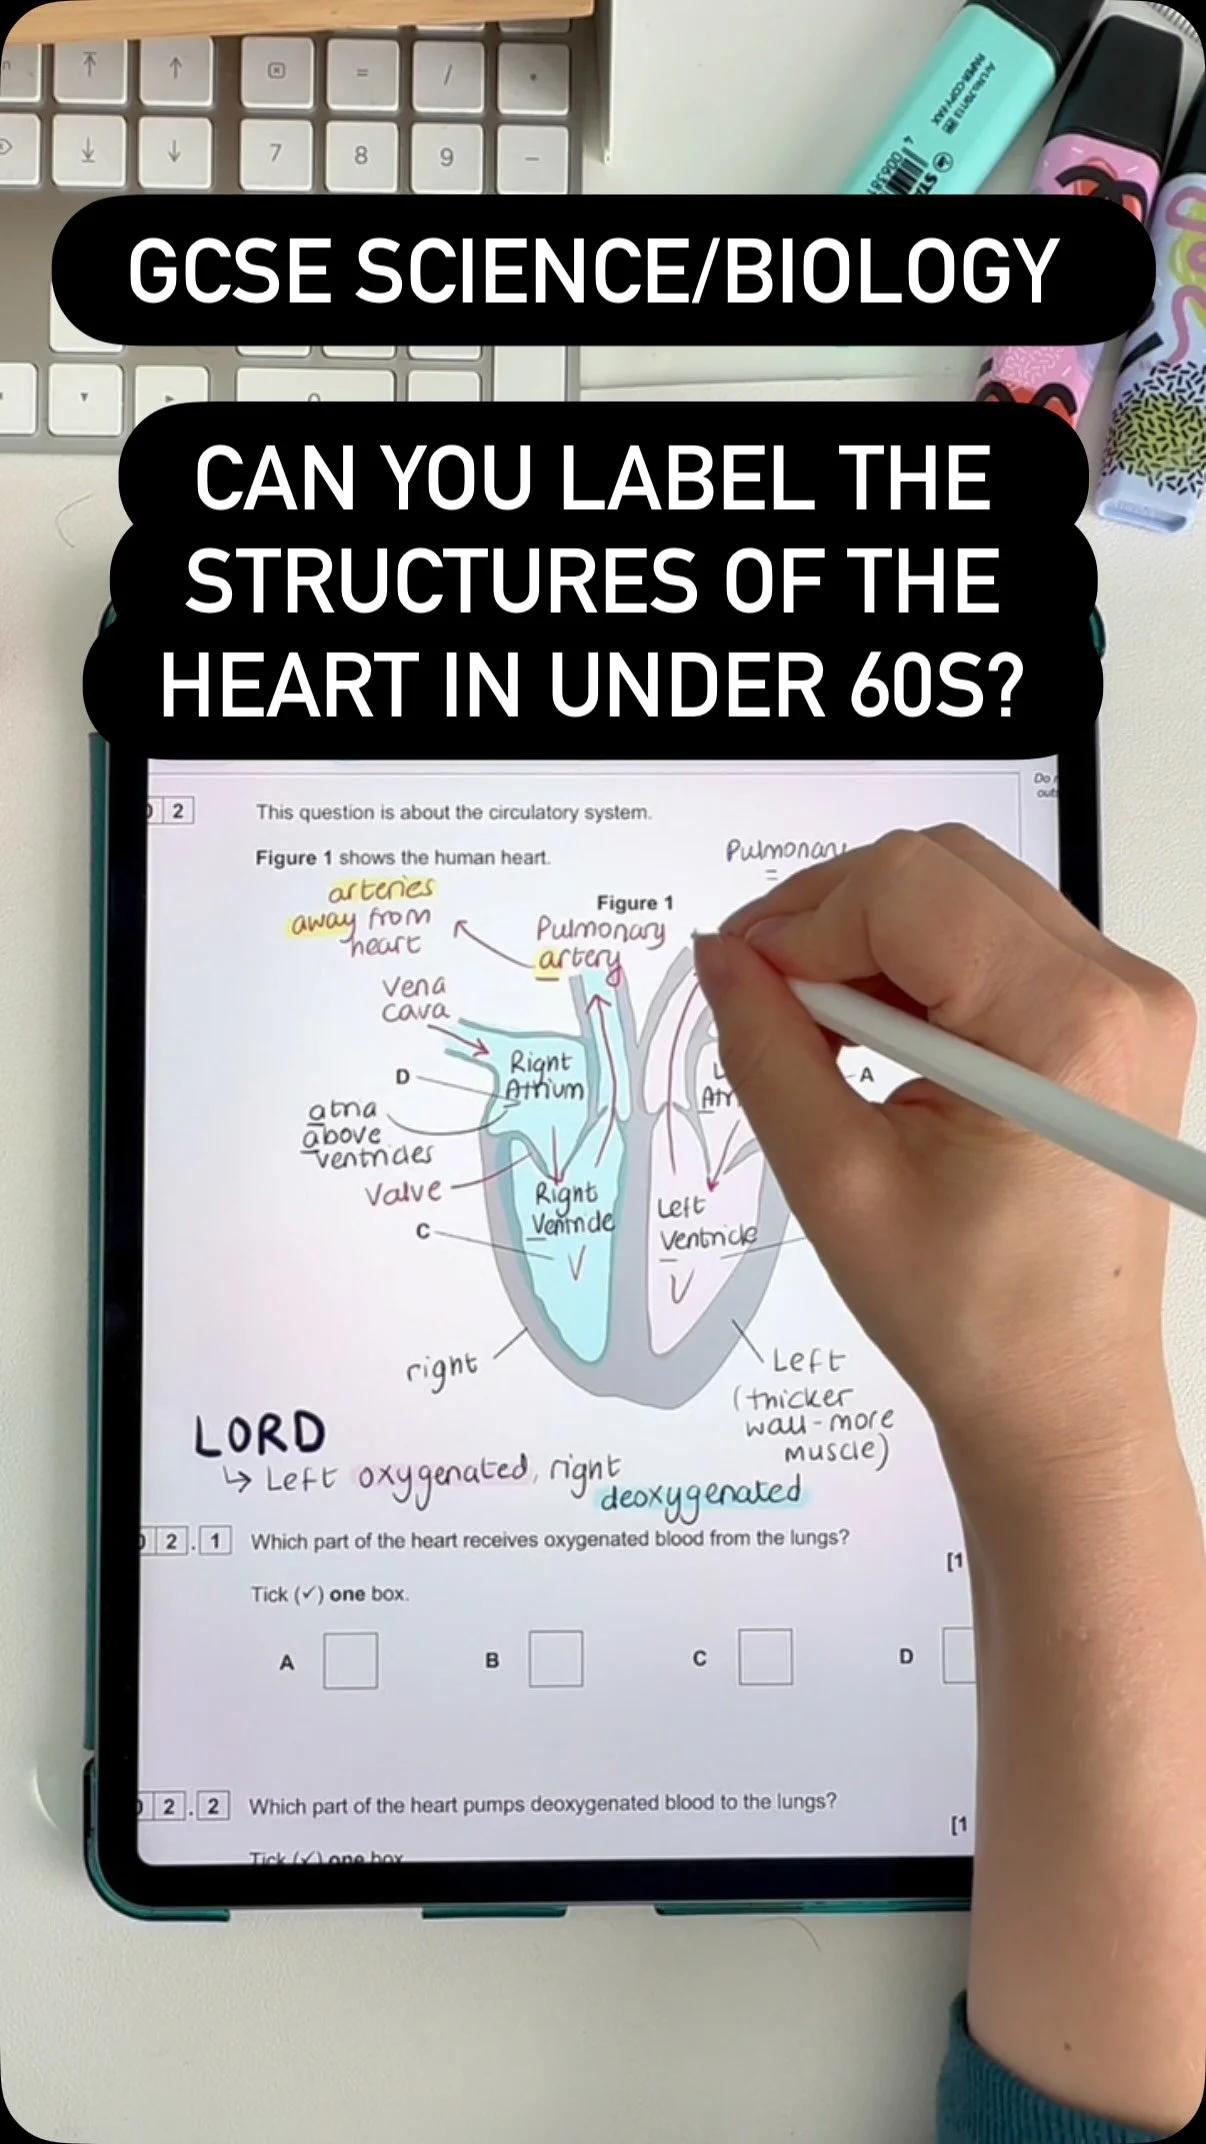 7
8
9
=
/
-
GCSE SCIENCE/BIOLOGY
CAN YOU LABEL THE
STRUCTURES OF THE
HEART IN UNDER 60S?
2
This question is about the circulatory system.
Do
Figure 1 shows the human heart.
Pulmonary
Figure 1
arteries
away from
heart
Pulmonary
artery
Vena
cava
D
Right
Atrium
A
atria
above
ventricles
Valve
Right
Ventricle
Left
Ventricle
C
V
V
right
Left
(thicker
wall - more
muscle)
LORD
↳ Left oxygenated, right
deoxygenated
2 . 1 Which part of the heart receives oxygenated blood from the lungs?
[1
Tick (✓) one box.
A
B
C
D
2 . 2 Which part of the heart pumps deoxygenated blood to the lungs?
[1
Tick (✓) one box